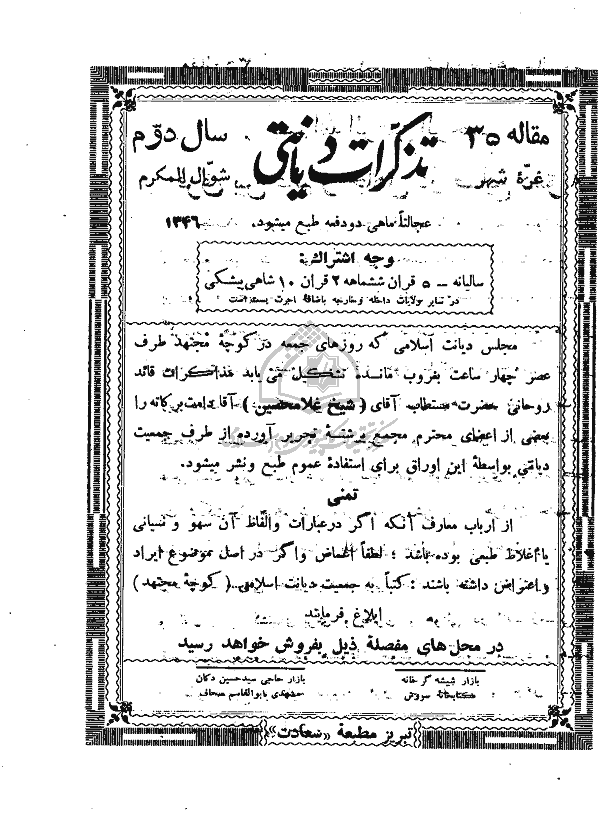 مقاله ۳۵
تذکرات دیانتی
سال دوّم
غرّهٔ شهر
شوّال المکرم
عجالتاً ماهی دو دفعه طبع میشود.
۱۳۴۶
وجه اشتراك:
سالیانه — ۵ قران ششماهه ۲ قران ۱۰ شاهی پیشکی
در سایر ولایات داخله و خارجه باضافهٔ اجرت پست است
مجلس دیانت اسلامی که روزهای جمعه در کوچهٔ مجتهد طرف
عصر چهار ساعت بغروب مانده تشکیل می یابد مذاکرات قائد
روحانی حضرت مستطاب آقای (شیخ غلامحسین) آقا دامت برکاته را
بعضی از اعضای محترم مجمع برشتهٔ تحریر آورده از طرف جمعیت
دیانتی بواسطهٔ این اوراق برای استفادهٔ عموم طبع ونشر میشود.
تمنی
از ارباب معارف آنکه اگر در عبارات والفاظ آن سهو و نسیانی
یا اغلاط طبعی بوده باشد ؛ لطفاً اغماض واگر در اصل موضوع ایراد
و اعتراض داشته باشند : کتباً به جمعیت دیانت اسلامی (کوچهٔ مجتهد)
ابلاغ فرمایند
در محل های مفصلهٔ ذیل بفروش خواهد رسید
بازار شیشه گر خانه
کتابخانهٔ سروش
بازار حاجی سیدحسین دکان
مشهدی ابوالقاسم صحاف
تبریز مطبعهٔ «سعادت»